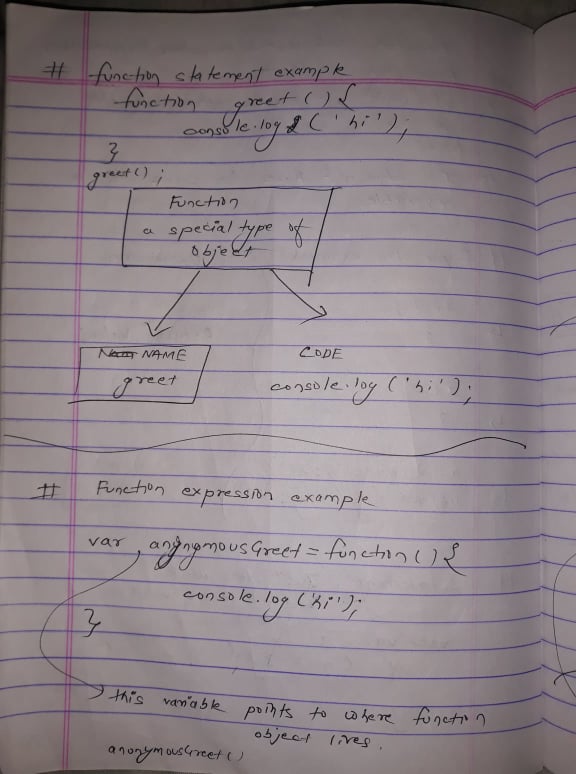 # function statement example
function greet () {
console.log ('hi');
}
greet();
Function
a special type of
object
NAME
greet
CODE
console.log ('hi');
# Function expression example
var anonymousGreet = function () {
console.log ('hi');
}
this variable points to where function
object lives.
anonymousGreet()